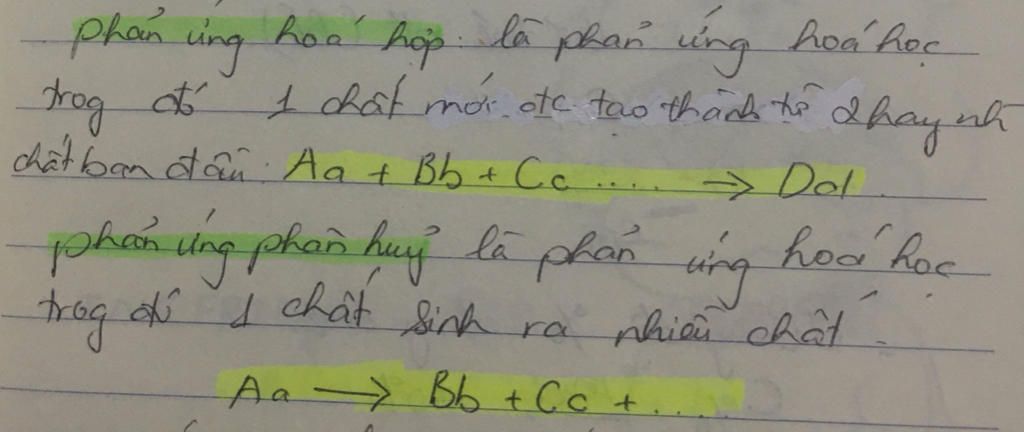 phản ứng hoá hợp. là phản ứng hoá học
trog đó 1 chất mới đtc tạo thành từ 2 hay nh
chất ban đầu. Aa + Bb + Cc ..... → Dd.
phản ứng phân huỷ là phản ứng hoá học
trog đó 1 chất sinh ra nhiều chất.
Aa → Bb + Cc + ....